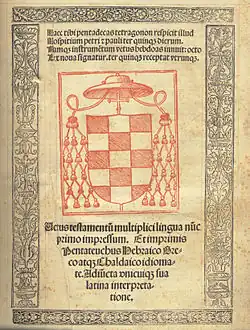 Haec tibi pentadecas tetragonon respicit illud
Hospitium petri & pauli ter quinqz dierum.
Namqz instrumētum vetus hebdoas innuit: octo
Lex noua signatur. ter quinqz receptat vtrunqz.
Uetus testamentū multiplici lingua nūc
primo impressum. Et imprimis
Pentateuchus Hebraico Gre-
co atqz Chaldaico idioma-
te. Adiūcta vnicuiqz sua
latina interpreta-
tione.